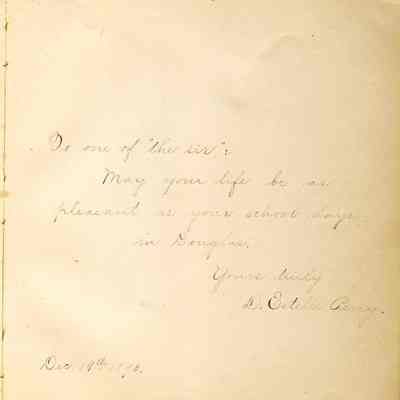 To one of "the six":
May your life be as
pleasant as your school days
in Douglas.
Yours truly
D. Estelle
Dec. 19th